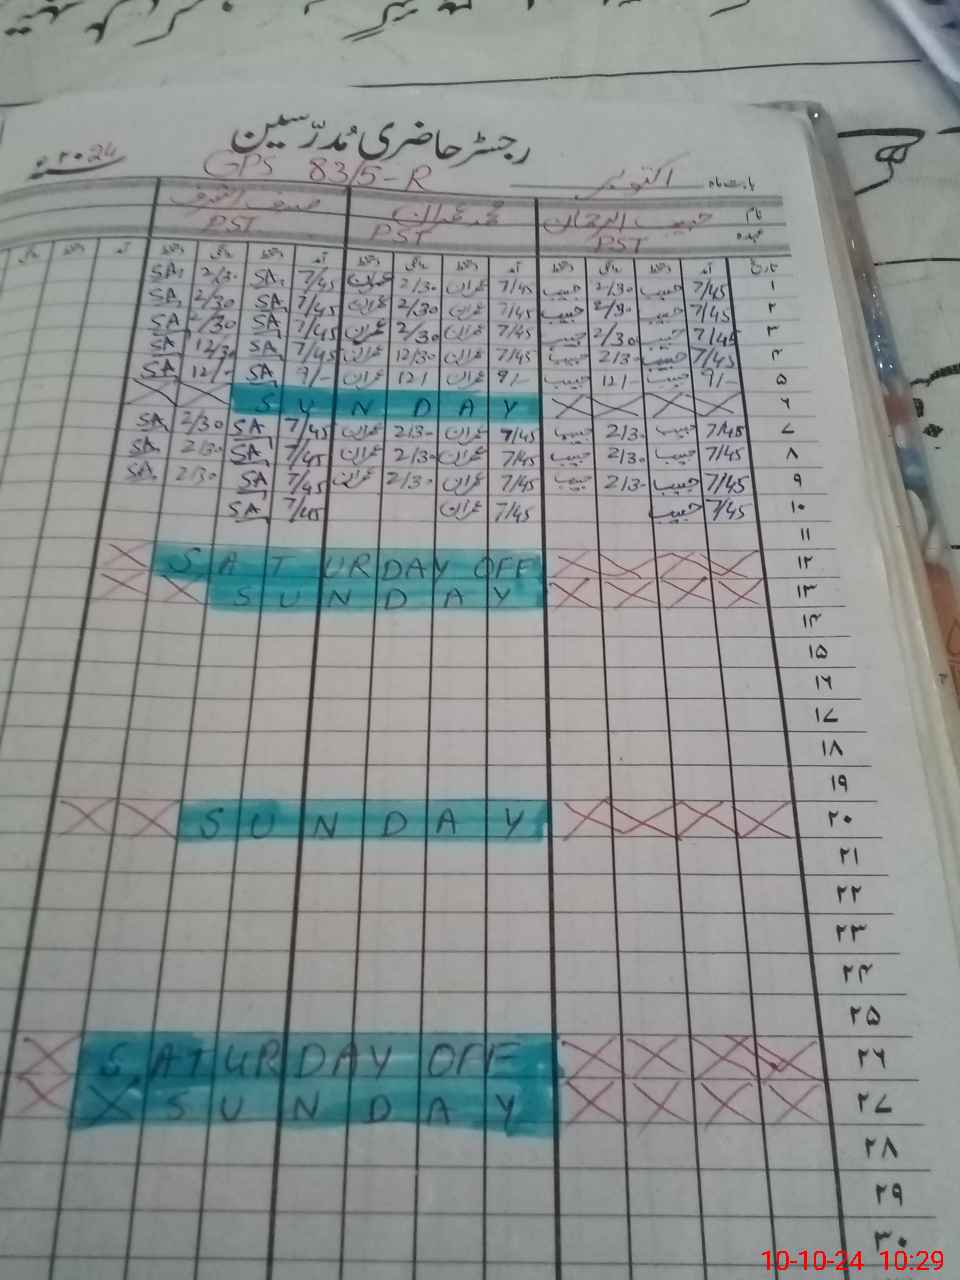 رجسٹر حاضری مُدرّسین
GPS 83/5-R
بابت ماہ اکتوبر سنہ ۲۰24ء
نام حبیب الرحمان محمد عمران
عہدہ PST PST PST
تاریخ آمد دستخط روانگی دستخط آمد دستخط روانگی دستخط آمد دستخط روانگی دستخط آمد دستخط روانگی
۱ 7/45 حبیب 2/30 حبیب 7/45 عمران 2/30 عمران 7/45 SA 2/30 SA
۲ 7/45 حبیب 2/30 حبیب 7/45 عمران 2/30 عمران 7/45 SA 2/30 SA
۳ 7/45 حبیب 2/30 حبیب 7/45 عمران 2/30 عمران 7/45 SA 2/30 SA
۴ 7/45 حبیب 2/30 حبیب 7/45 عمران 12/30 عمران 7/45 SA 12/30 SA
۵ 9/- حبیب 12/- حبیب 9/- عمران 12/- عمران 9/- SA 12/- SA
۶ SUNDAY
۷ 7/45 حبیب 2/30 حبیب 7/45 عمران 2/30 عمران 7/45 SA 2/30 SA
۸ 7/45 حبیب 2/30 حبیب 7/45 عمران 2/30 عمران 7/45 SA 2/30 SA
۹ 7/45 حبیب 2/30 حبیب 7/45 عمران 2/30 عمران 7/45 SA 2/30 SA
۱۰ 7/45 حبیب 7/45 عمران 7/45 SA
۱۱
۱۲ SATURDAY OFF
۱۳ SUNDAY
۱۴
۱۵
۱۶
۱۷
۱۸
۱۹
۲۰ SUNDAY
۲۱
۲۲
۲۳
۲۴
۲۵
۲۶ SATURDAY OFF
۲۷ SUNDAY
۲۸
۲۹
۳۰
10-10-24 10:29